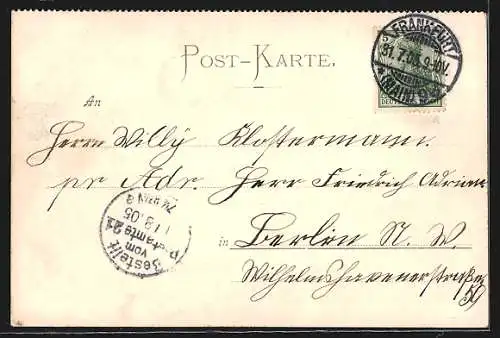 POST-KARTE.
FRANKFURT
31.7.05.9-10V.
(MAIN)
DEUTSCHES
An
Herrn Willy Klostermann.
pr Adr. Herr Friedrich Adrian
in Berlin N. W.
Wilhelmshavenerstraße
59
Bestellt
vom
Postamte 21
1/8.05